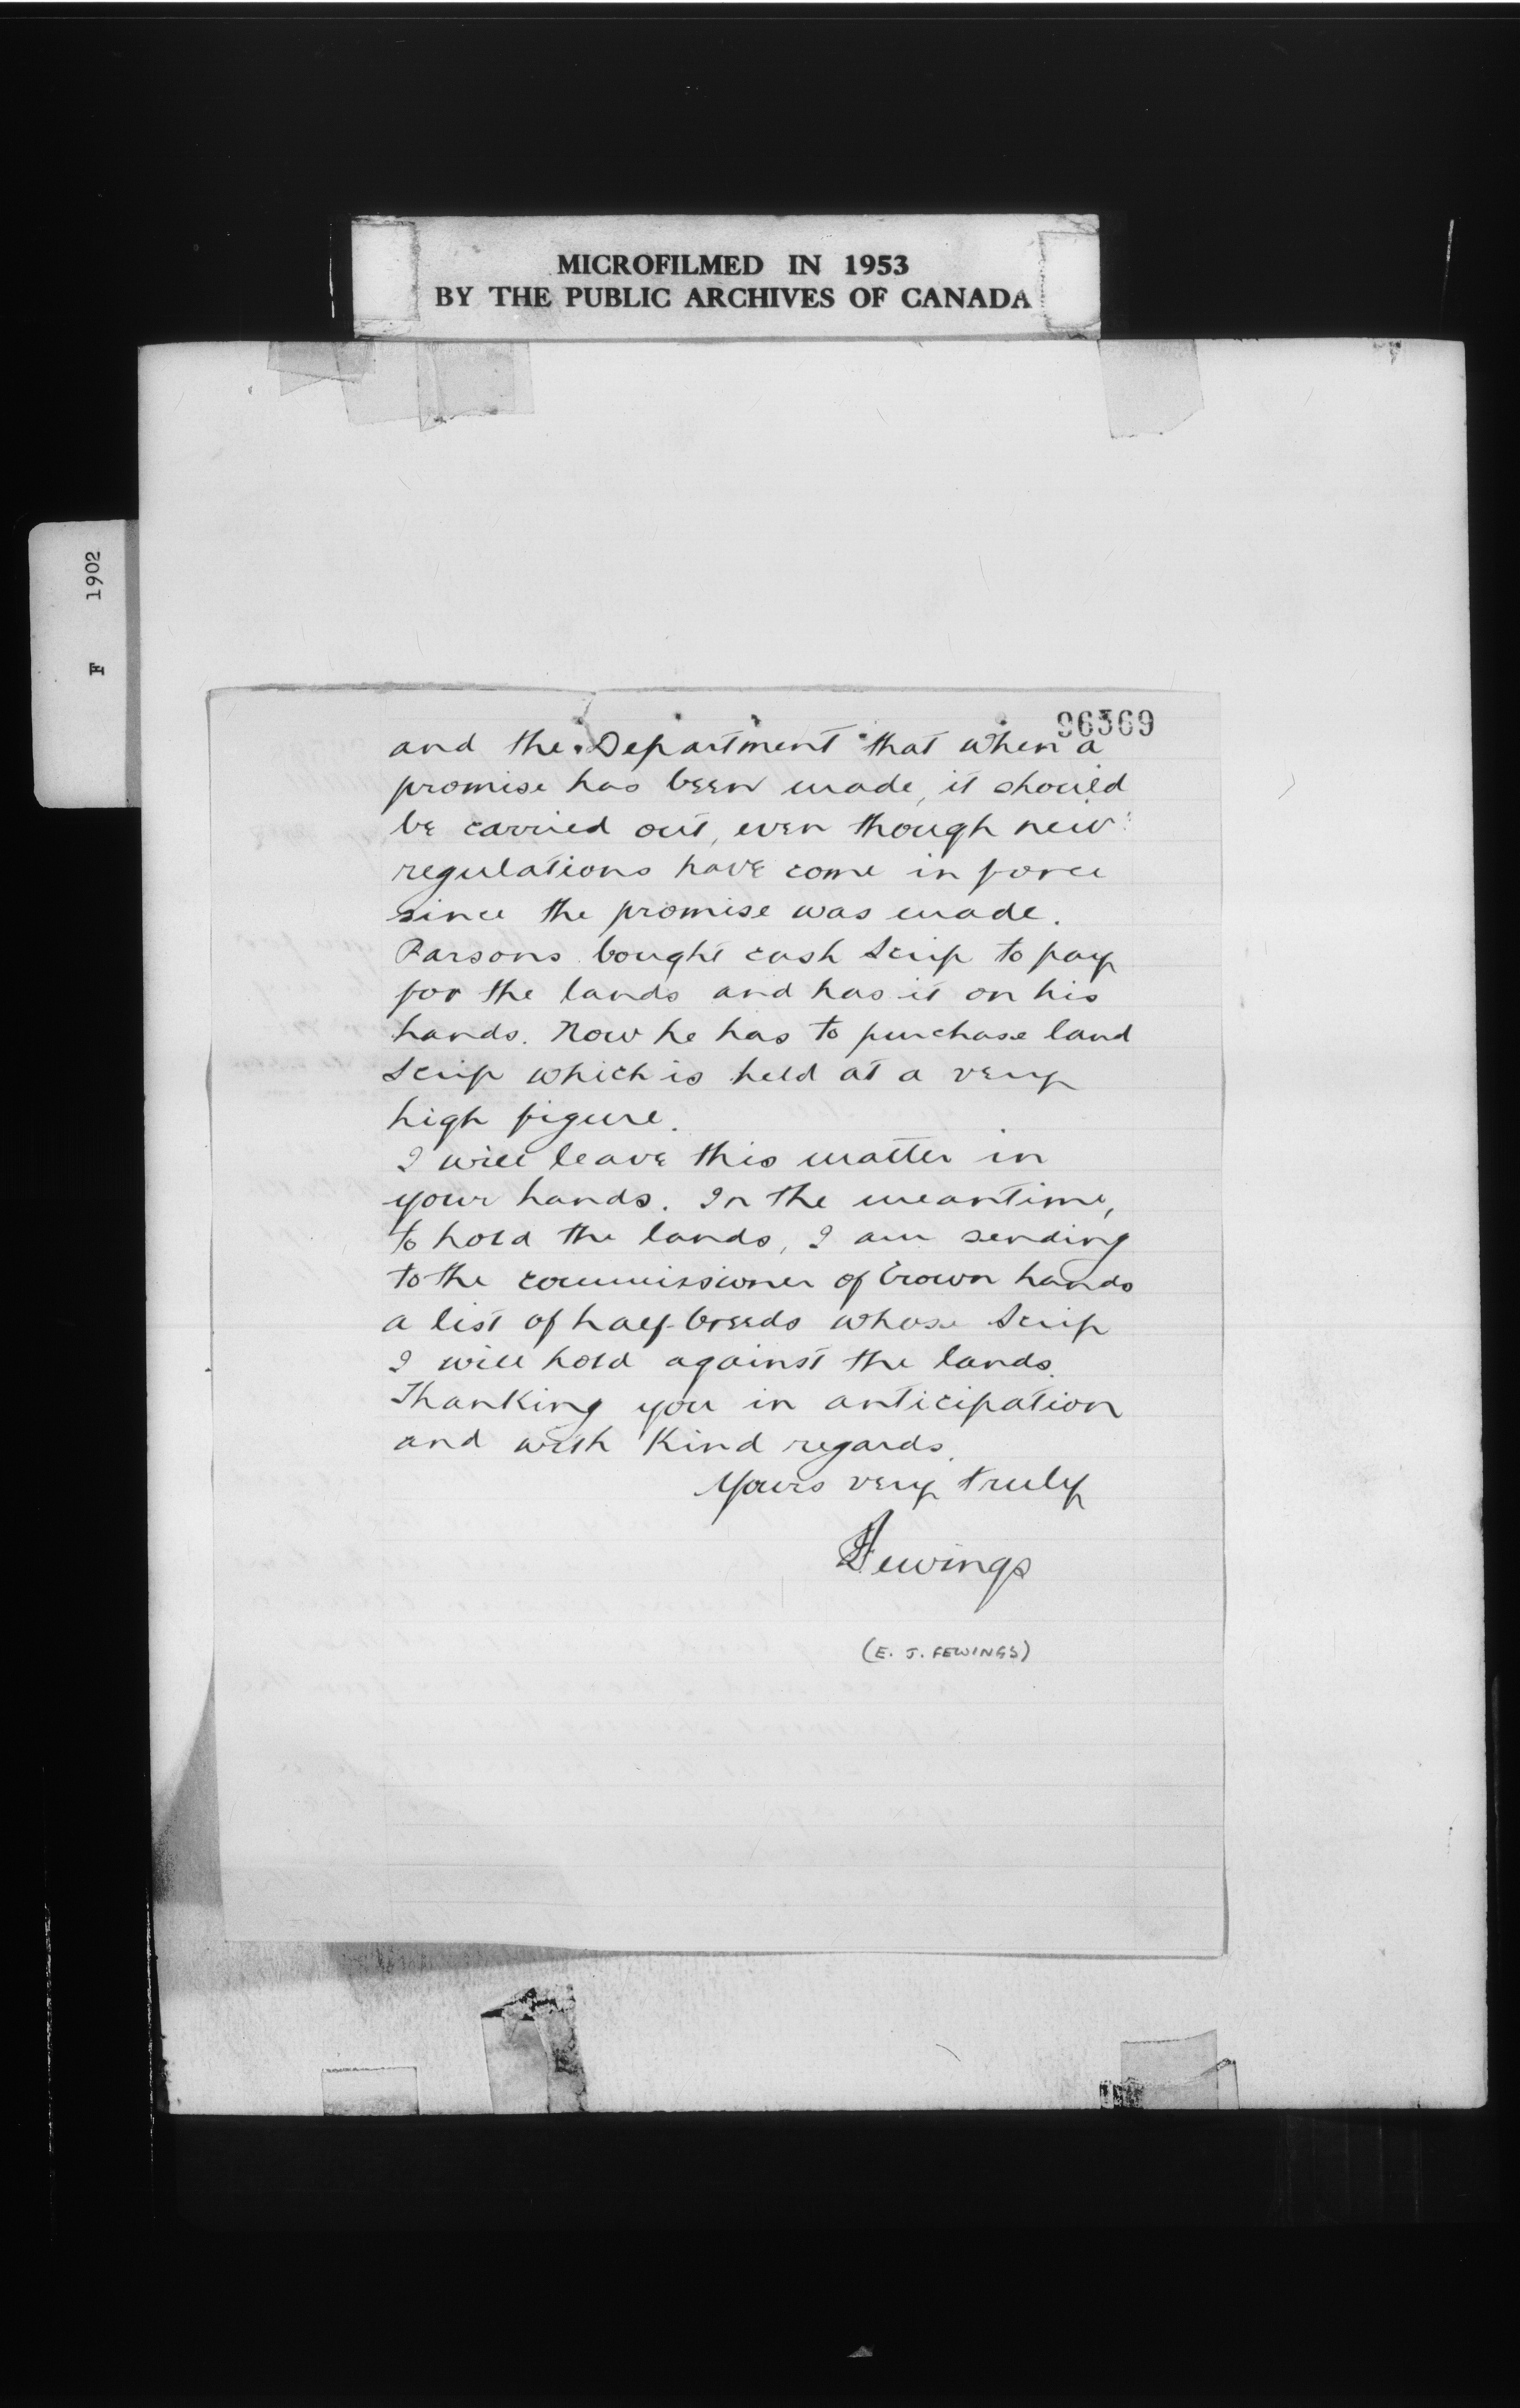 MICROFILMED IN 1953
BY THE PUBLIC ARCHIVES OF CANADA
F 1902
96369
and the Department that when a
promise has been made, it should
be carried out, even though new
regulations have come in force
since the promise was made.
Parsons bought cash Scrip to pay
for the lands and has it on his
hands. Now he has to purchase land
Scrip which is held at a very
high figure.
I will leave this matter in
your hands. In the meantime,
to hold the lands, I am sending
to the commissioner of Crown lands
a list of half-breeds whose Scrip
I will hold against the lands.
Thanking you in anticipation
and with Kind regards.
Yours very truly
Fewings
(E. J. FEWINGS)